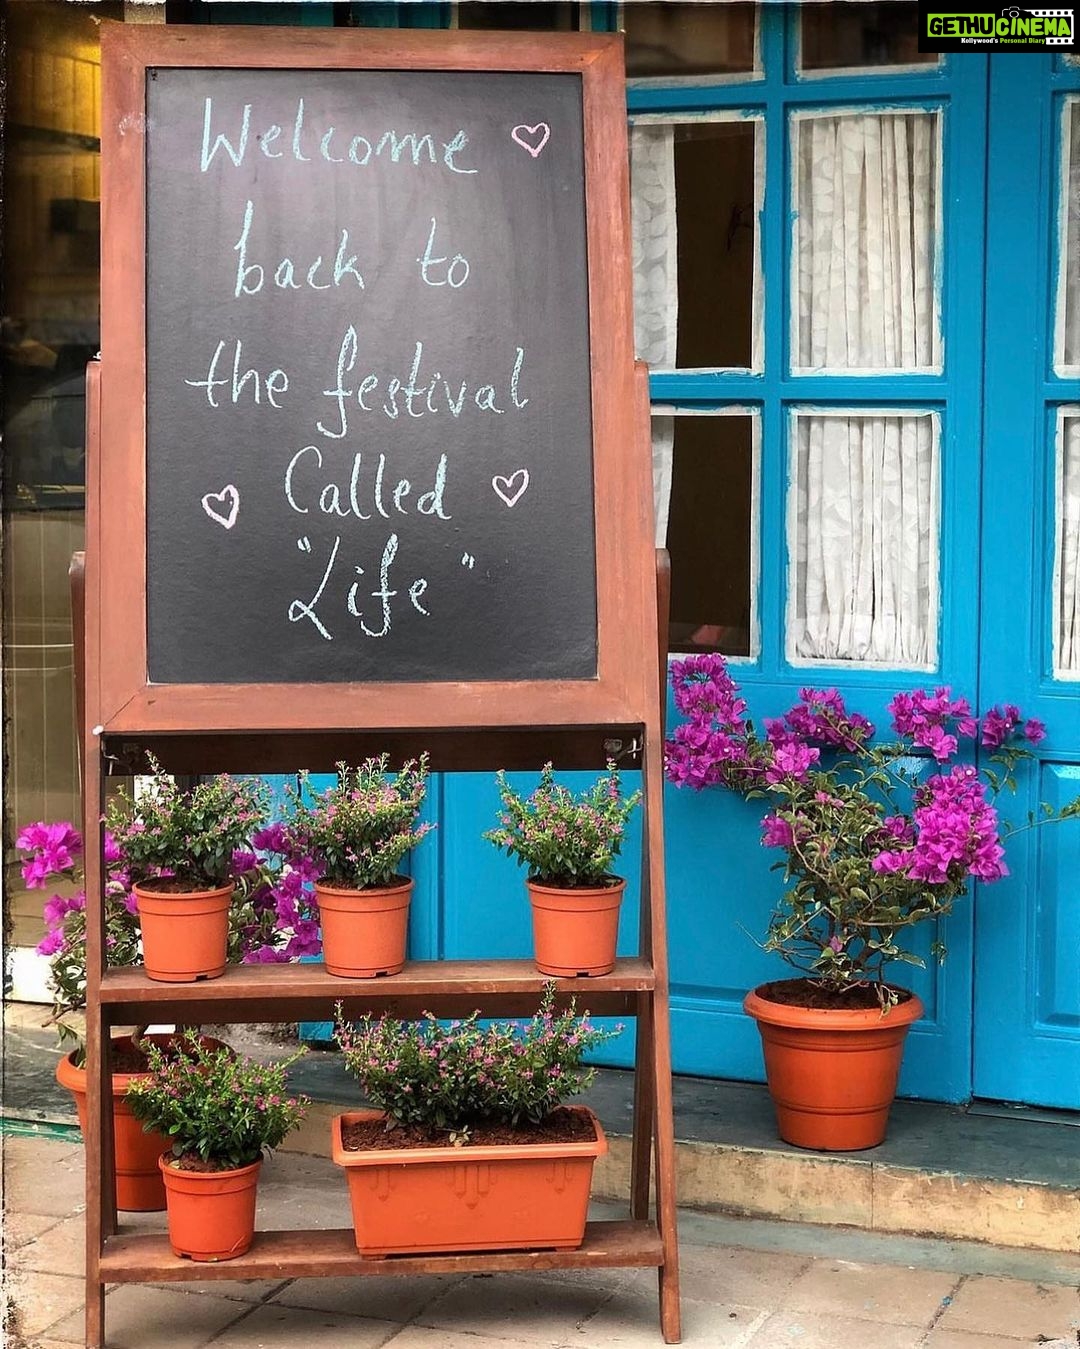 GETHUCINEMA
Kollywood's Personal Diary
Welcome
back to
the festival
Called
"Life"